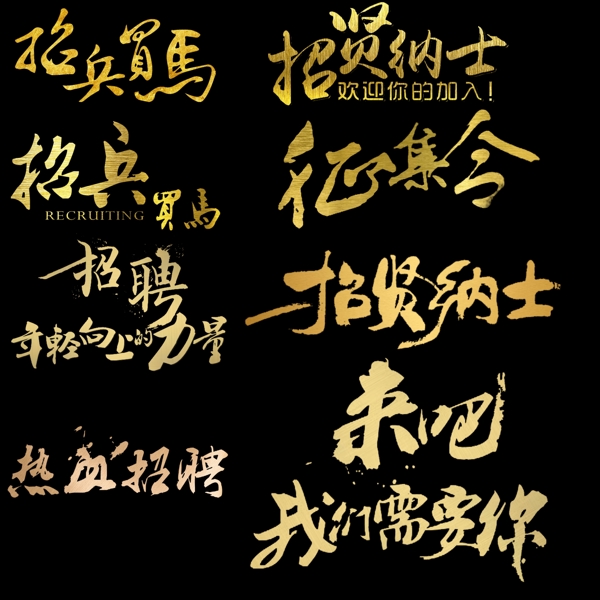 招兵買馬
招贤纳士
欢迎你的加入!
招兵
RECRUITING
買馬
征集令
招聘
年輕向上的力量
招贤纳士
热血招聘
来吧
我们需要你